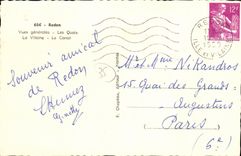 656 - Redon
Vues générales - Les Quais
La Vilaine - Le Canal
12F
Souvenir amical
de Redon
Mr et Mme Nikandros
15 Quai des Grands-
Augustins
Paris
(6e)